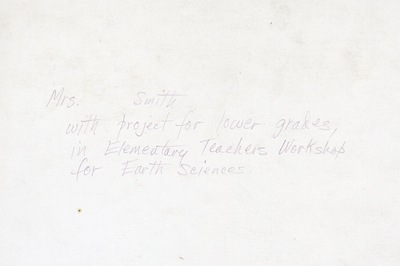 Mrs. Smith
with project for lower grades,
in Elementary Teachers Workshop
for Earth Sciences.